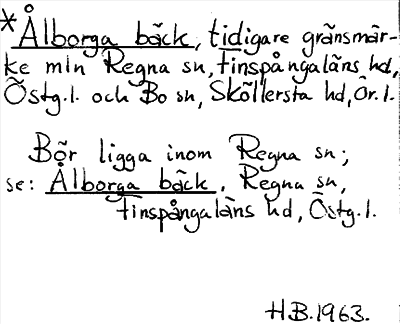 *Ålborga bäck, tidigare gränsmär-
ke mln Regna sn, Finspångaläns hd,
Östg.l. och Bo sn, Sköllersta hd, Ör.l.
Bör ligga inom Regna sn;
se: Ålborga bäck, Regna sn,
Finspångaläns hd, Östg.l.
H.B.1963.